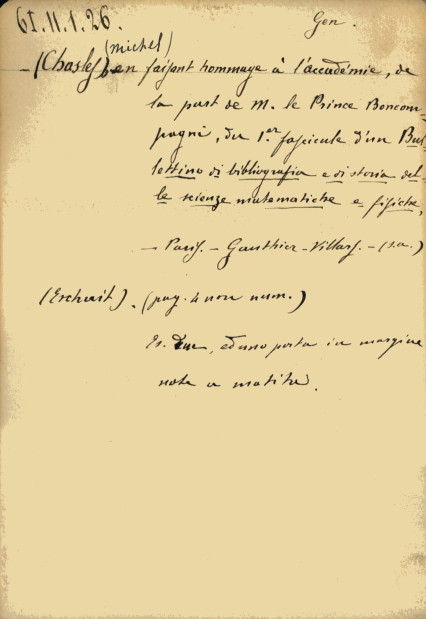 61.11.1.26.
Gen.
(Michel)
– (Chasles) en faisant hommage à l'académie, de
la part de M. le Prince Boncom-
pagni, du 1er fascicule d'un Bul-
lettino di bibliografia e di storia del-
le scienze matematiche e fisiche.
– Paris. – Gauthier-Villars. – (s.a.)
(Extrait). (pag. 4 non num.)
Es. due, ed uno porta in margine
note a matita.